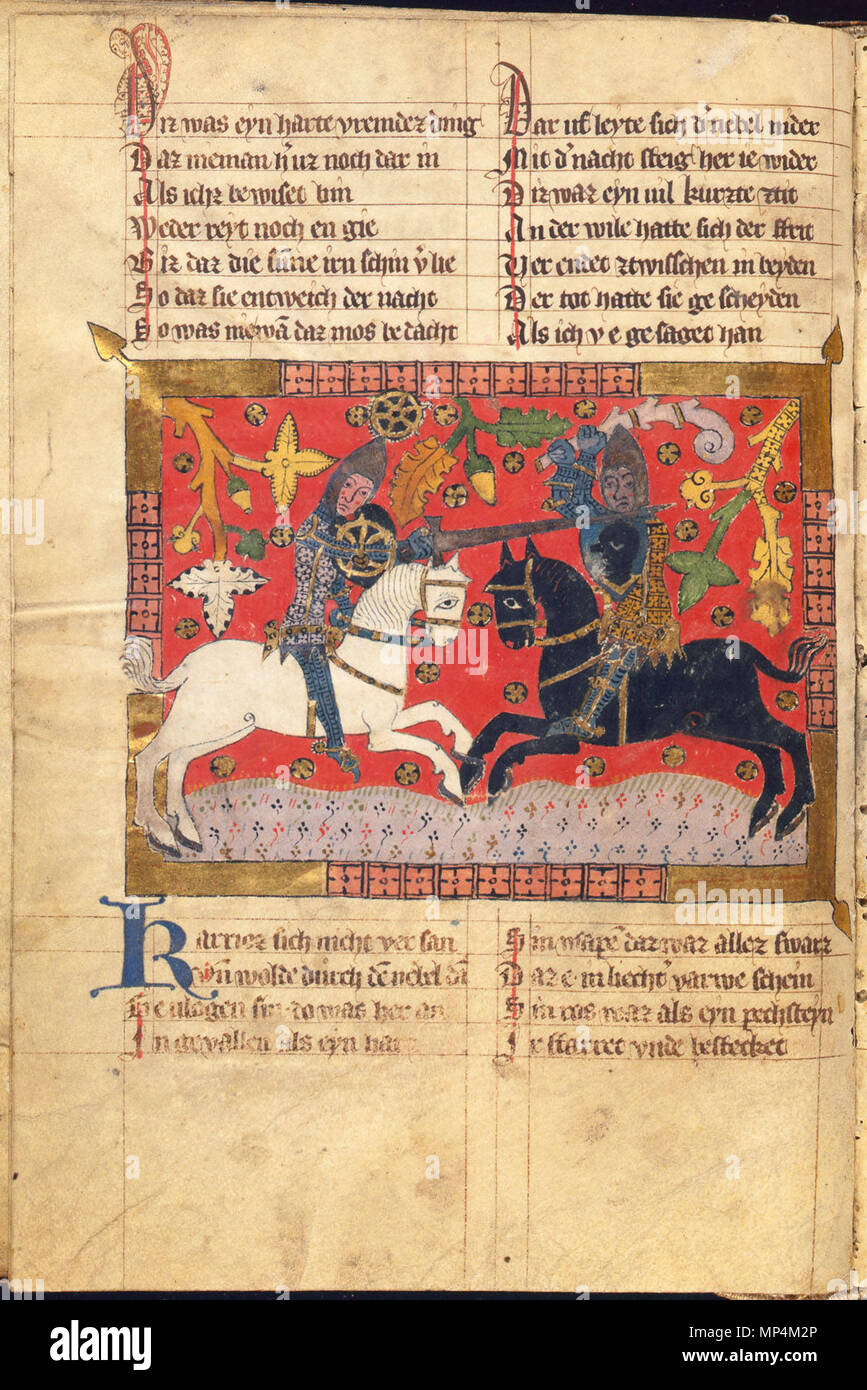 Diz was eyn harte vremdez ding
Daz nieman h uz noch dar in
Als ichz bewiset bin
Weder reyt noch en gie
Biz daz die sūne irn schin v̄lie
So daz sie entweich der nacht
So was daz mos bedacht
Dar uf leyte sich d' nebel nider
Mit d' nacht steig her ie wider
Diz waz eyn uil kurtze ztit
An der wile hatte sich der strit
Ver endet ztwisschen in beyden
Der tot hatte sie ge scheyden
Als ich v e ge saget han
Karriez sich nicht ver san
wolde durch dē nebel dā
do was her an
In gevallen als eyn
Sin wapē daz waz allez swarz
Daz e in varwe schein
Sin ros waz als eyn pechsteyn
Ir starret vnde bestecket
alamy
Image ID: MP4M2P
www.alamy.com